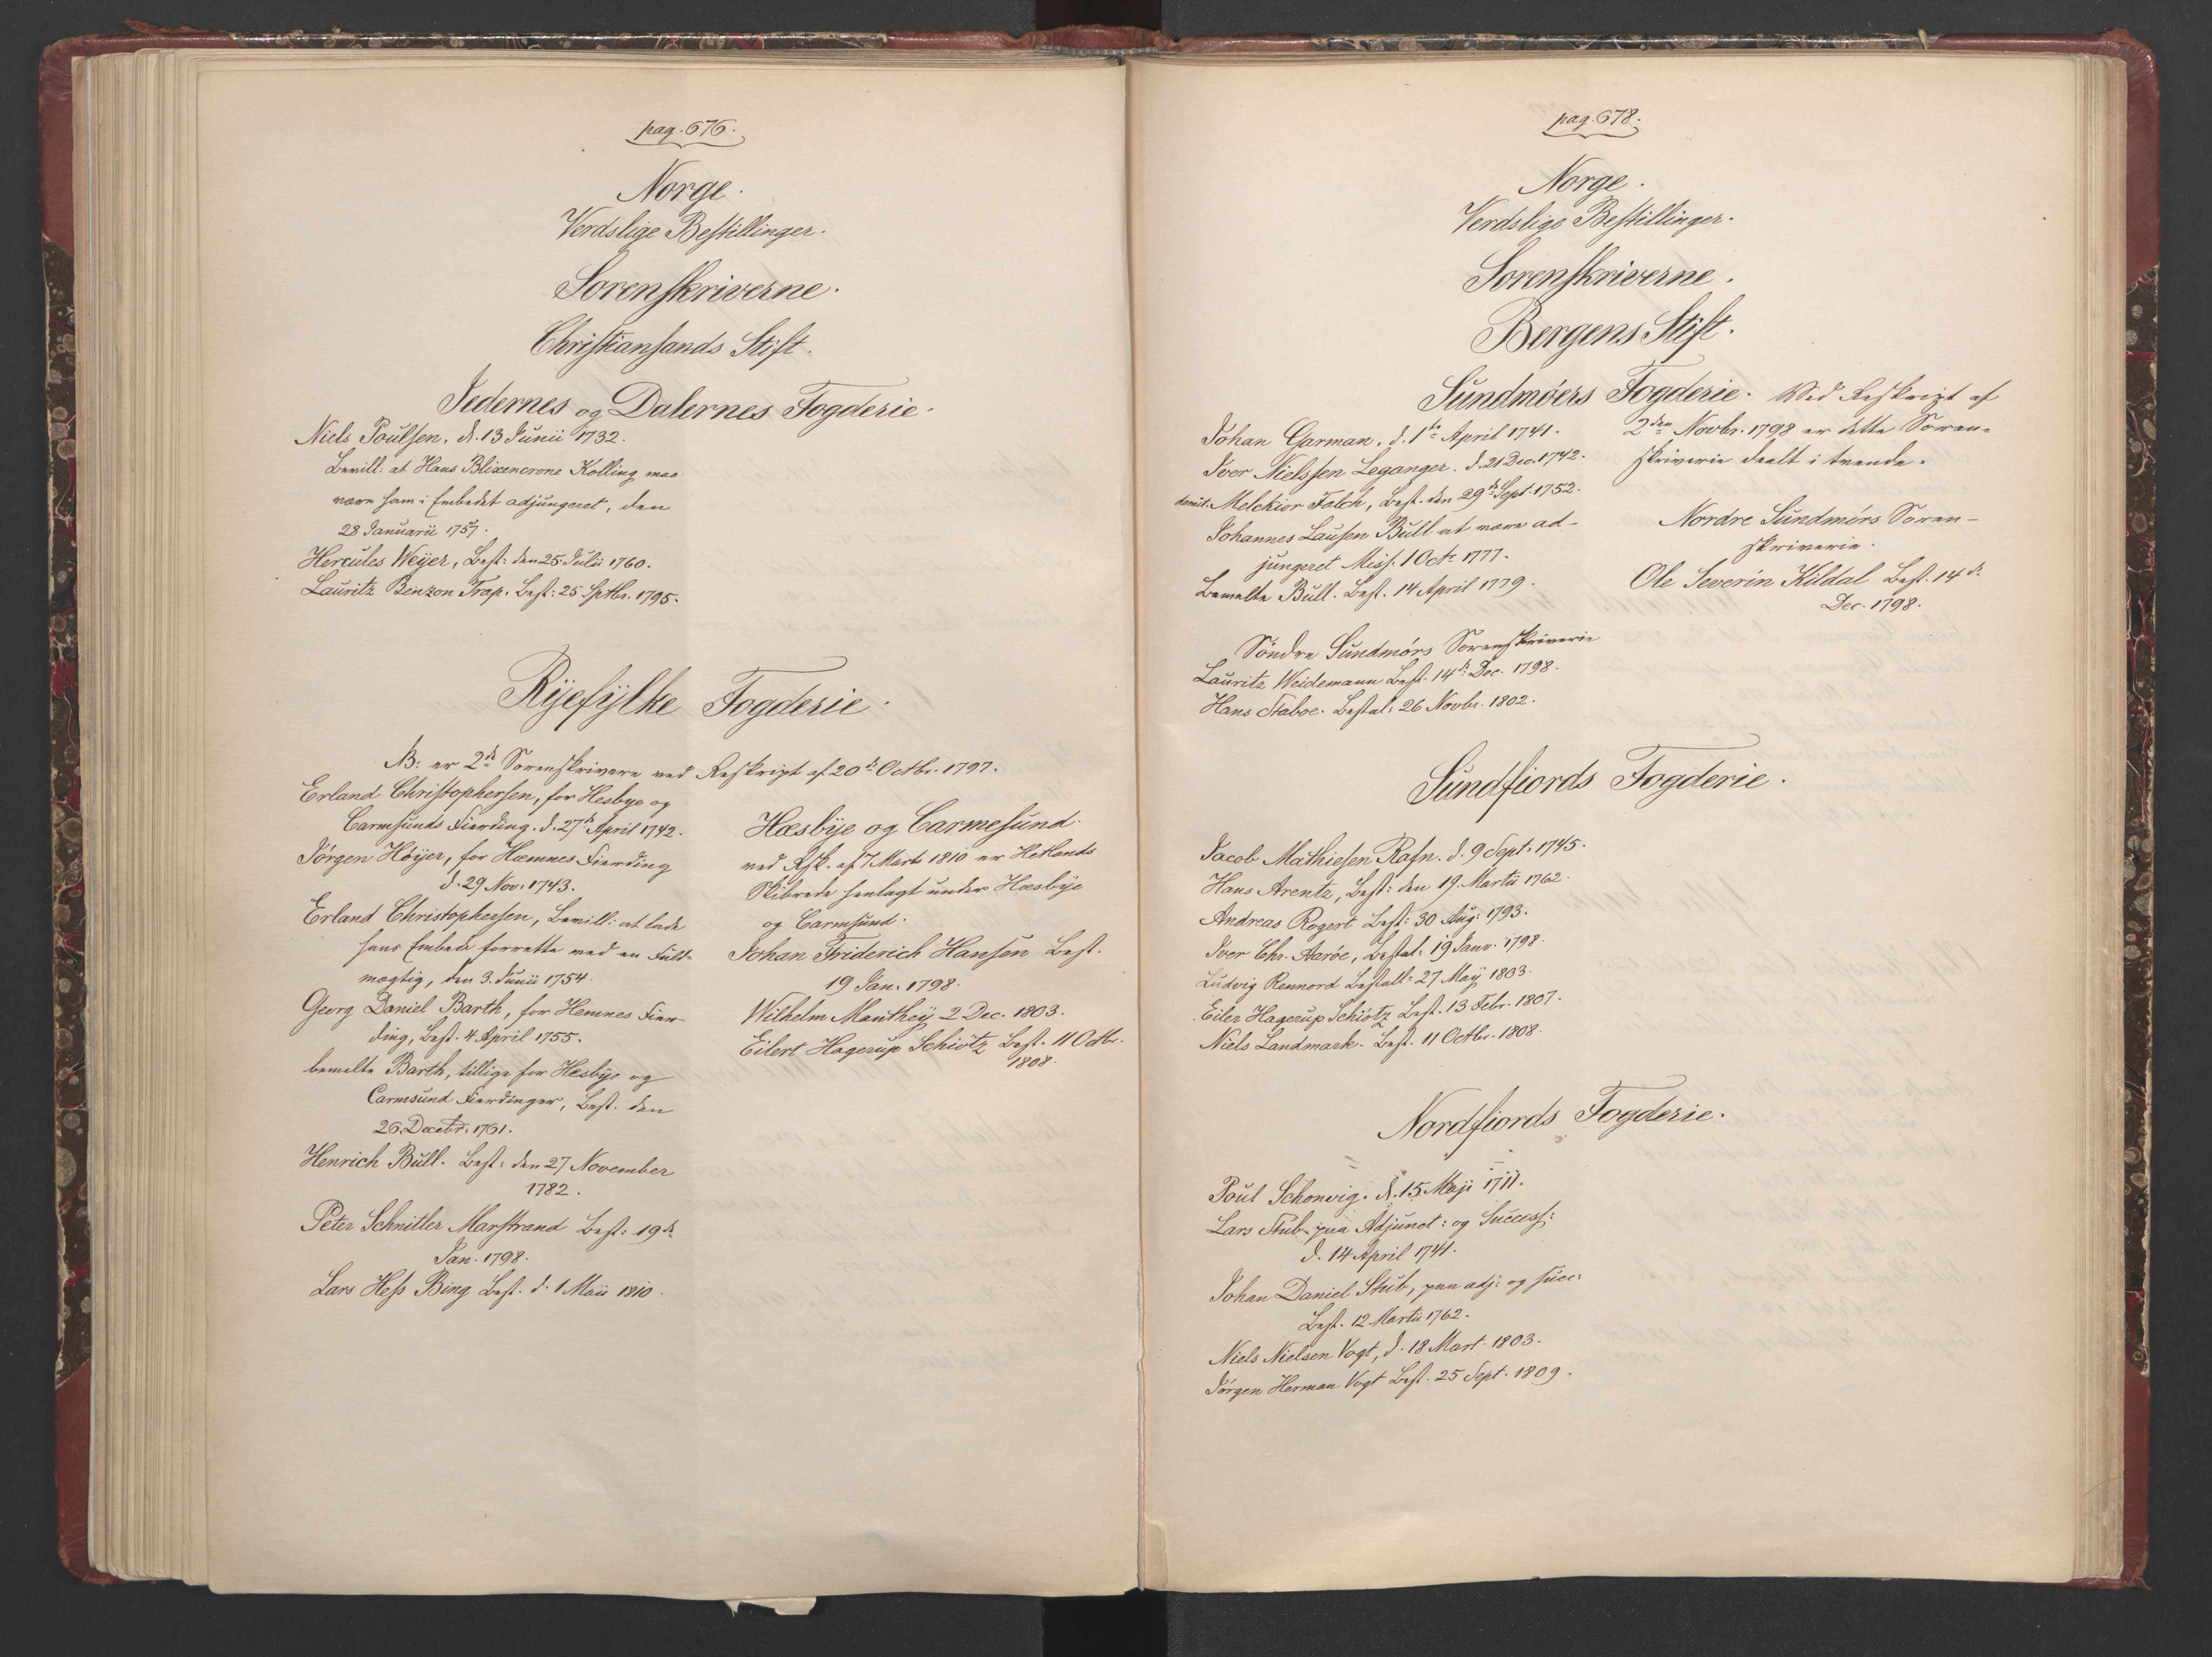 pag. 676.
Norge.
Verdslige Bestillinger.
Sorenskriverne.
Christiansands Stift.
Jedernes og Dalernes Fogderie.
Niels Poulsen, d. 13 Junii 1732.
Bevill: at Hans Blixencrone Kolling maa
være ham i Embedet adjungeret, den
28 Januarii 1757.
Hercules Weyer, Best: den 25 Julii 1760.
Lauritz Benzon Trap. Best: 25 Sptbr. 1795.
Ryefylke Fogderie.
NB: er 2de Sorenskrivere ved Reskript af 20de Octbr. 1797.
Erland Christophersen, for Hesbye og
Carmsunds Fierding. d. 27de April 1742.
Jørgen Høyer, for Hæmnes Fierding
d. 29 Nov. 1743.
Erland Christophersen, Bevill: at lade
hans Embede forrette ved en Fuld-
mægtig, den 3. Junii 1754.
Georg Daniel Barth, for Hemnes Fier-
ding, Best. 4. April 1755.
bemelte Barth, tillige for Hesbye og
Carmsund Fierdinger, Best. den
26. Decebr. 1761.
Henrich Bull. Best: den 27 November
1782.
Peter Schnitler Marstrand Best: 19de
Jan. 1798.
Lars Hess Bing Best. d. 1 Maii 1810.
Hæsbye og Carmesund.
ved Rsk. af 7 Marts 1810 er Hetlands
Skibrede henlagt under Hæsbye
og Carmsund.
Johan Friderich Hansen Best.
19 Jan. 1798.
Wilhelm Manthey 2 Dec. 1803.
Eilert Hagerup Schiötz Best. 11 Octbr.
1808.
pag. 678.
Norge.
Verdslige Bestillinger.
Sorenskriverne.
Bergens Stift.
Sundmøers Fogderie.
Johan Garman, d. 1te April 1741.
Iver Nielssen Leganger. d. 21 Dec. 1742.
demit: Melchior Falch, Best. den 29de Sept. 1752.
Johannes Lausen Bull at være ad-
jungeret Miss. 1 Octr 1777.
Bemelte Bull. Best. 14 April 1779.
Söndre Sundmörs Sorenskriverie
Lauritz Weidemann Best. 14de Dec. 1798.
Hans Staboe. Bestal: 26 Novbr. 1802.
Ved Reskript af
2den Novbr. 1798 er dette Soren-
skriverie deelt i tvende.
Nordre Sundmørs Soren-
skriverie.
Ole Severin Kildal Best. 14de
Dec. 1798.
Sundfiords Fogderie.
Jacob Mathiesen Rafn. d. 9 Sept. 1745.
Hans Arentz, Best: den 19. Martii 1762.
Andreas Rogert Best: 30 Aug: 1793.
Iver Chr. Aarøe, Bestal: 19 Janv. 1798.
Ludvig Rennord Bestall: 27 May 1803.
Eiler Hagerup Schiötz Best. 13 Febr. 1807.
Niels Landmark. Best. 11 Octbr. 1808.
Nordfiords Fogderie.
Poul Schonvig. d. 15 Maji 1711.
Lars Stub paa Adjunct: og Success:
d. 14 April 1741.
Johan Daniel Stub, paa adj: og succ:
Best. 12 Martii 1762.
Niels Nielsen Vogt, d. 18 Mart. 1803.
Jörgen Herman Vogt Best. 25 Sept. 1809.